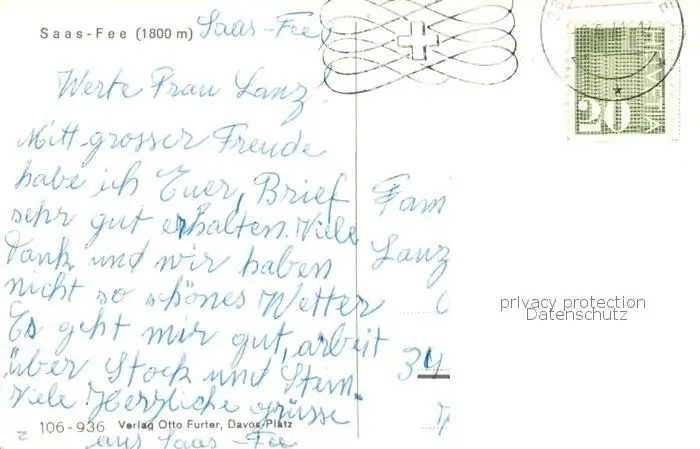 Saas-Fee (1800 m) Saas-Fee
Werte Frau Lanz!
Mitt grosser Freude
habe ich Euer, Brief
sehr gut erhalten. Viele
Dank und wir haben
nicht so schönes Wetter
Es geht mir gut, arbeit
über Stock und Stein.
Viele Herzliche grüsse
aus Saas-Fee
106-936 Verlag Otto Furter, Davos-Platz
Fam
Lanz
34
HELVETIA
20
privacy protection
Datenschutz